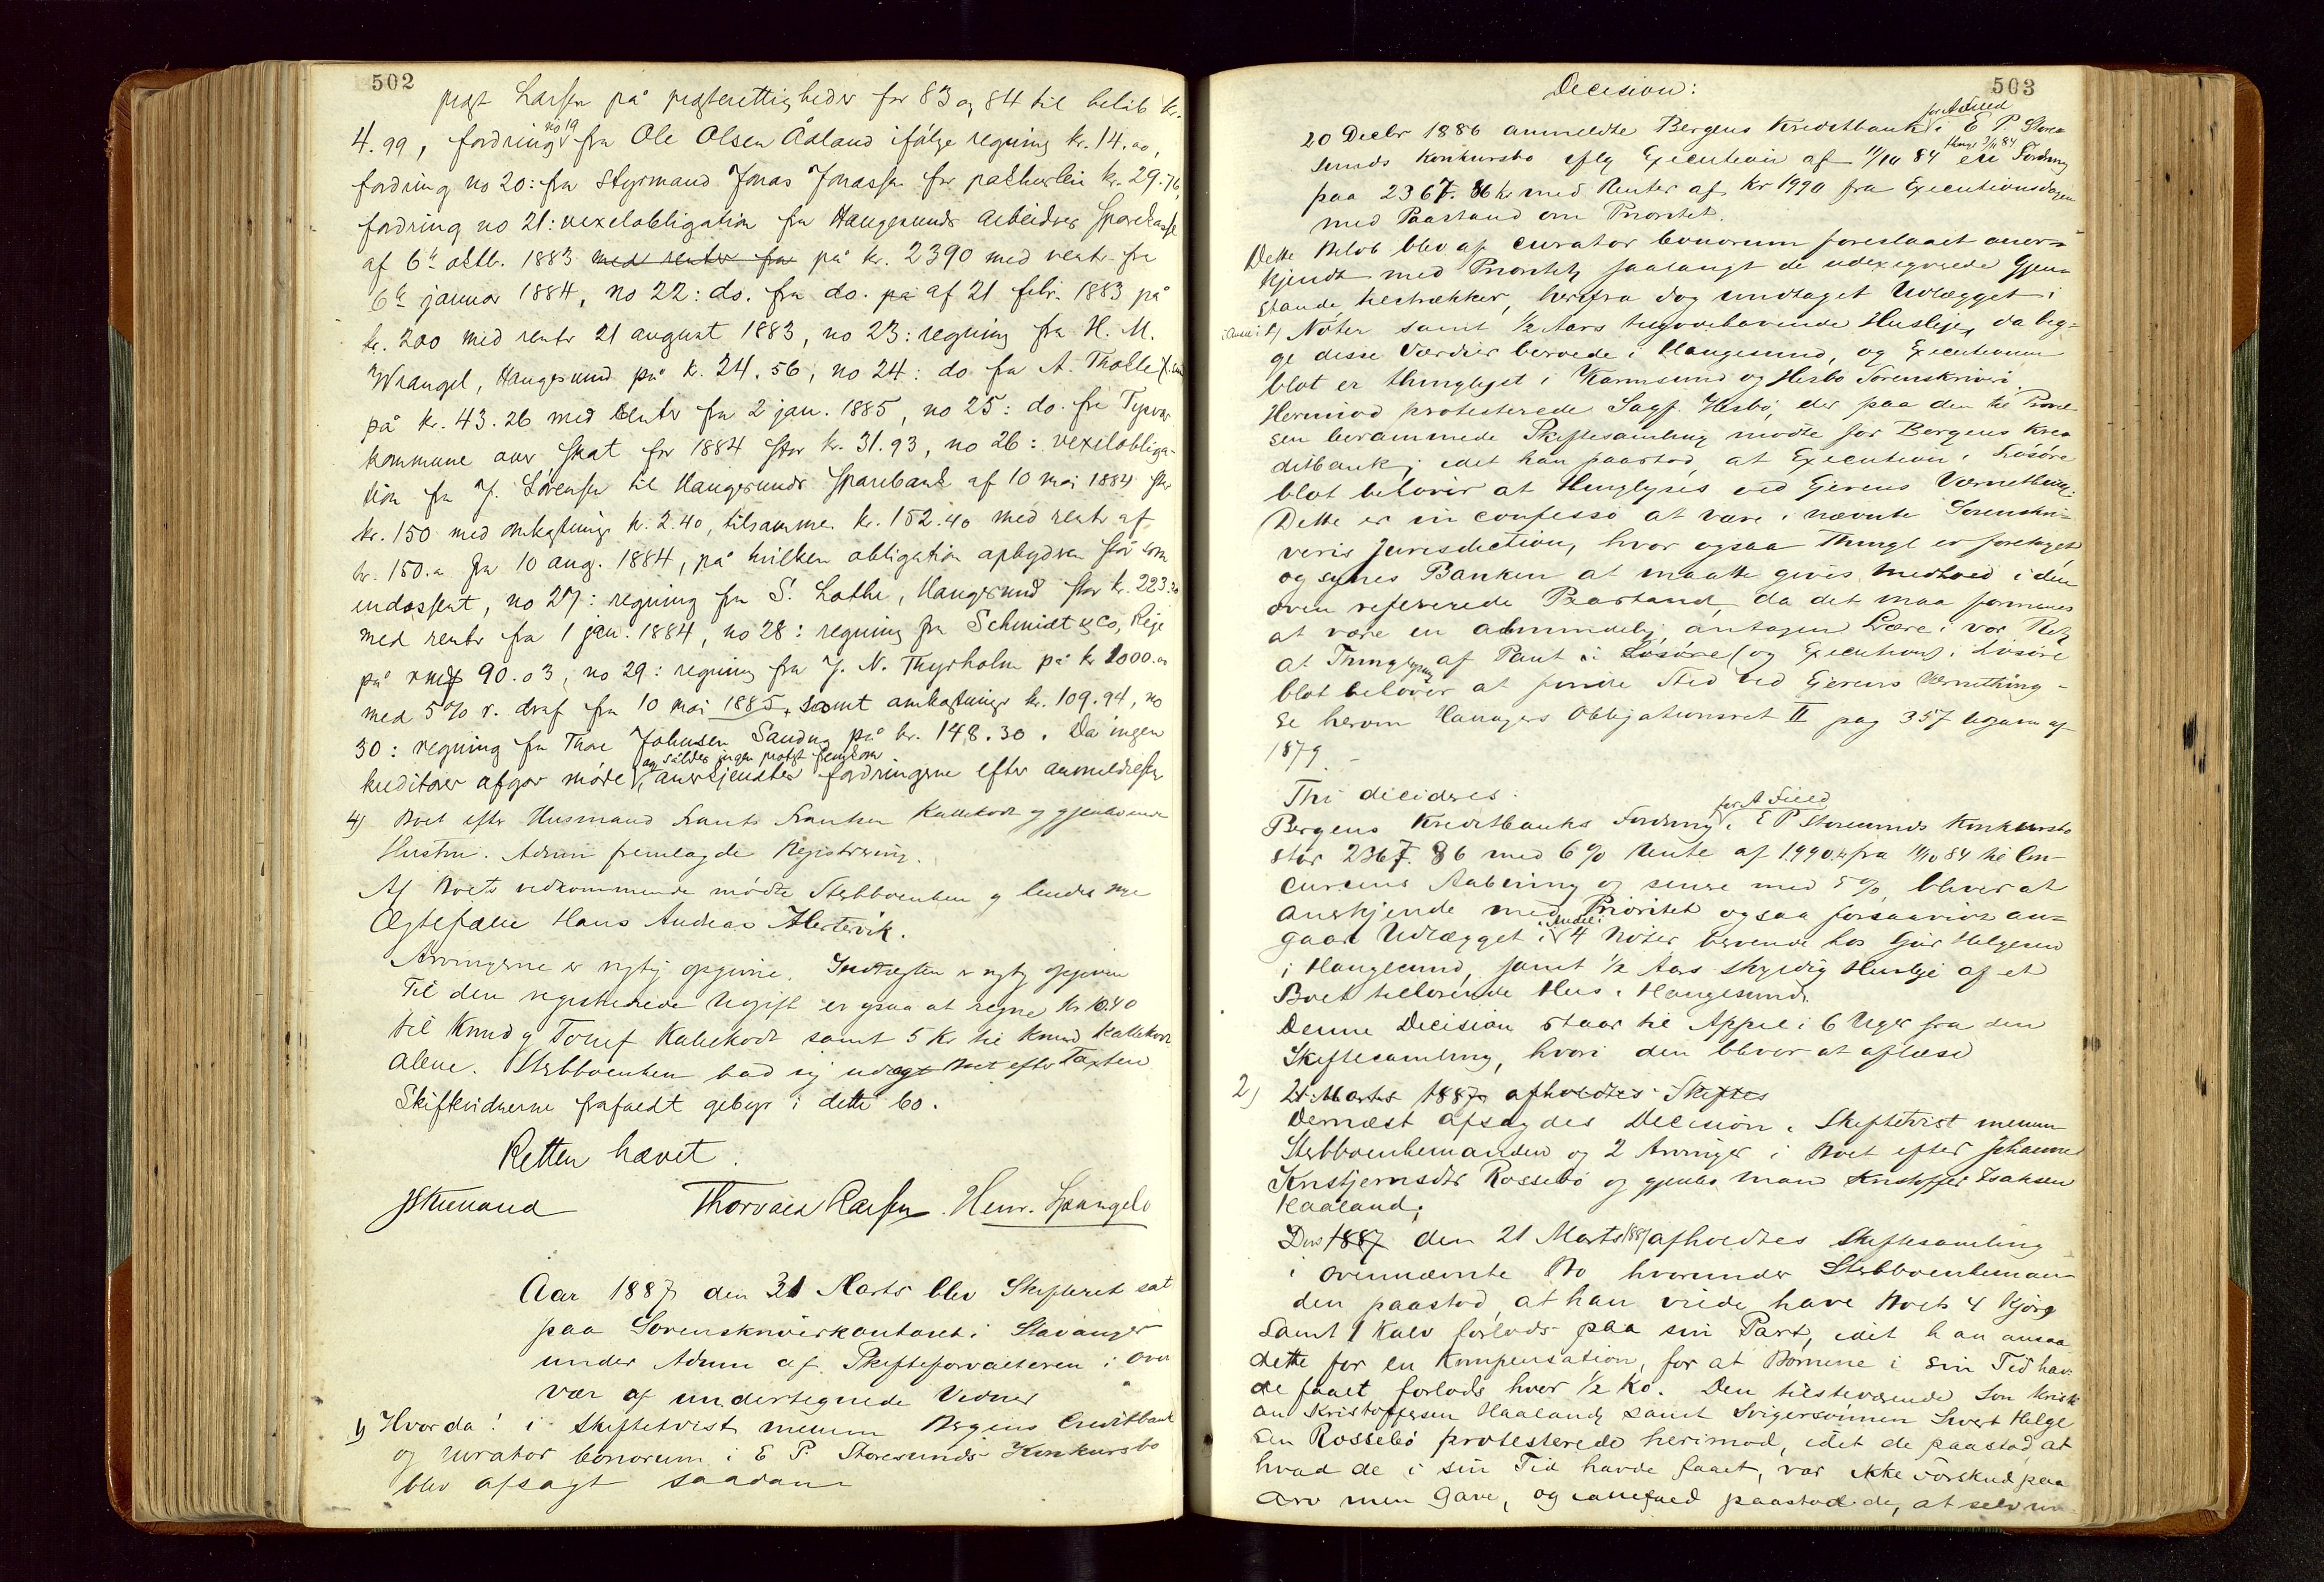 502
pegt Larsen på pegterettigheder for 83 og 84 til beløb kr.
4.99, fordring no 19 fra Ole Olsen Åsland ifølge regning kr. 14.00,
fordring no 20: fra Styrmand Jonas Jonassen for pakhusleie kr. 29.76,
fordring no 21: vexelobligation fra Haugesunds Arbeidres Sparekasse
af 6te oktb. 1883 med renter fra på kr. 2390 med renter fra
6te januar 1884, no 22: do. fra do. på af 21 febr. 1883 på
kr. 200 med renter 21 august 1883, no 23: regning fra H. M.
Wrangel, Haugesund på kr. 24.56, no 24: do fra A. Tholle
på kr. 43.26 med renter fra 2 jan. 1885, no 25: do. fra Tysvær
kommune over skat for 1884 stor kr. 31.93, no 26: vexelobliga-
tion fra J. Sørensen til Haugesunds Sparebank af 10 mai 1884 stor
kr. 150 med omkostninger kr. 2.40, tilsammen kr. 152.40 med renter af
kr. 150.00 fra 10 aug. 1884, på hvilken obligation opbydren står som
endossent, no 27: regning fra S. Lothe, Haugesund stor kr. 223.30
med renter fra 1 jan. 1884, no 28: regning fra Schmidt & Co, Riga
på rmk 90.03, no 29: regning fra J. N. Thyrholm på kr 1000.00
med 5% r. deraf fra 10 mai 1885, samt omkostninger kr. 109.94, no
30: regning fra Thore Johnsen Sandnes på kr. 148.30. Da ingen
kreditorer afgav møde og således ingen protest fremkom, anerkjendtes fordringerne efter anmeldelserne
4) Boet efter Husmand Knut Knutsen Kallekodt og gjenlevende
Hustru. Admin fremlagde Registrering.
Af Boets vedkommende mødte Stebboenken og hendes nye
Ægtefælle Hans Andreas Hertervik.
Arvingerne er rigtig opgivne. Indtægten er rigtig opgiven
Til den registrerede Udgift er ogsaa at regne Kr 10.40
til Knud og Tosef Kallekodt samt 5 Kr til Knud Kallekodt
alene. Stebboenken bad sig udlagt Boet efter Taxten
Skiftevidnerne frafaldt gebyr i dette bo.
Retten hævet.
Thorvald Larsen. Henr. Spangelo
Aar 1887 den 31 Marts blev Skifteret sat
paa Sorenskriverkontoret i Stavanger
under Admin af Skifteforvalteren i Over
vær af undertegnede Vidner
1) Hvorda! i Skiftetvist mellem Bergens Creditbank
og curator bonorum i E P. Storesunds Konkursbo
blev afsagt saadan
503
Decision:
20 Decbr 1886 anmeldte Bergens Kreditbank for A Sued i E P. Store-
sunds Konkursbo iflg Execution af 11/10 84 thingl 3/11 84 en Fordring
paa 2367.86 kr med Renter af kr 1990 fra Executionsdagen
med Paastand om Prioritet.
Dette Beløb blev af curator bonorum foreslaaet aner-
kjendt med Prioritet, saalangt de udexeqverede Gjen-
stande tilstrækker, herfra dog undtaget Udlægget i
4 Nøter samt ½ Aars tilgodehavende Husleje, da beg-
ge disse Værdier beroede i Haugesund, og Executionen
blot er thinglyst i Karmsund og Hesbø Sorenskriveri.
Herimod protesterede Sagf. Hesbø, der paa den til Prøvel-
sen berammede Skiftesamling mødte for Bergens Kre-
ditbank, idet han paastod, at Execution i Løsøre
blot behøver at thinglyses ved Ejerens Værnething.
Dette er in confesso at være i nævnte Sorenskri-
veris Jurisdiction, hvor ogsaa Thingl er foretaget,
og synes Banken at maatte gives Medhold i den
oven refererede Paastand, da det maa formenes
at være en almindelig antagen Lære i vor Ret,
at Thinglysning af Pant i Løsøre (og Execution) i Løsøre
blot behøver at finde Sted ved Ejerens Værnething -
se herom Hallagers Obligationsret II pag 357 Udgaven af
1879. -
Thi decideres:
Bergens Kreditbanks Fordring for A Sued i E P Storesunds Konkursbo
stor 2367.86 med 6% Rente af 1990 kr fra 11/10 84 til Con-
cursens Aabning og senere med 5%, bliver at
anerkjende med Prioritet ogsaa forsaavidt an-
gaar Udlægget i Andel i 4 Nøter beroende hos Geir Helgesen
i Haugesund, samt ½ Aars skyldig Husleje af et
Boet tilhørende Hus i Haugesund.
Denne Decision staar til Appel i 6 Uger fra den
Skiftesamling, hvori den bliver at aflæse
2) 21 Marts 1887 afholdtes Skiftes
Dernæst afsagdes Decision i Skiftetvist mellem
Stebboenkemanden og 2 Arvinger i Boet efter Johanne
Kristjernsdtr Rossebø og gjenlev Mand Kristoffer Isaksen
Haaland.
1887 den 21 Marts 1887 afholdtes Skiftesamling
i ovennævnte Bo hvorunder Stebboenkeman-
den paastod, at han vilde have Boets 4 Kjør
samt 1 Kalv forlods paa sin Part, idet han ansaa
dette for en Kompensation, for at Børnene i sin Tid hav-
de faaet forlods hver ½ Ko. Den tilstedeværende Søn Kristi
an Kristoffersen Haaland, samt Svigersønnen Sivert Helge
sen Rossebø protesterede herimod, idet de paastod, at
hvad de i sin Tid havde faaet, var ikke Forskud paa
Arv men Gave, og ialtfald paastod de, at selv om